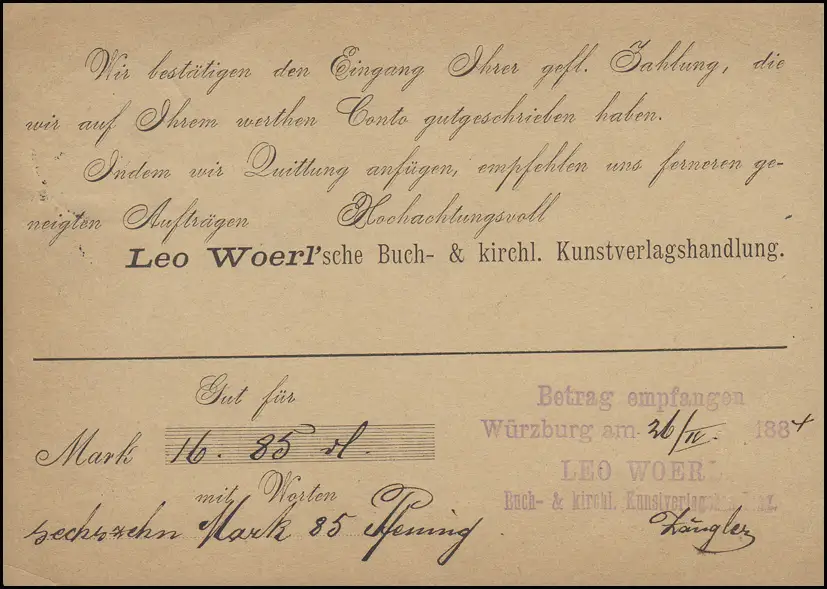 Wir bestätigen den Eingang Ihrer gefl. Zahlung, die
wir auf Ihrem werthen Conto gutgeschrieben haben.
Indem wir Quittung anfügen, empfehlen uns ferneren ge-
neigten Aufträgen Hochachtungsvoll
Leo Woerl'sche Buch- & kirchl. Kunstverlagshandlung.
Gut für
Mark 16. 85 dl.
mit Worten
sechszehn Mark 85 Pfening
Betrag empfangen
Würzburg am 26/IV. 1884
LEO WOERL
Buch- & kirchl. Kunstverlag
Zängler